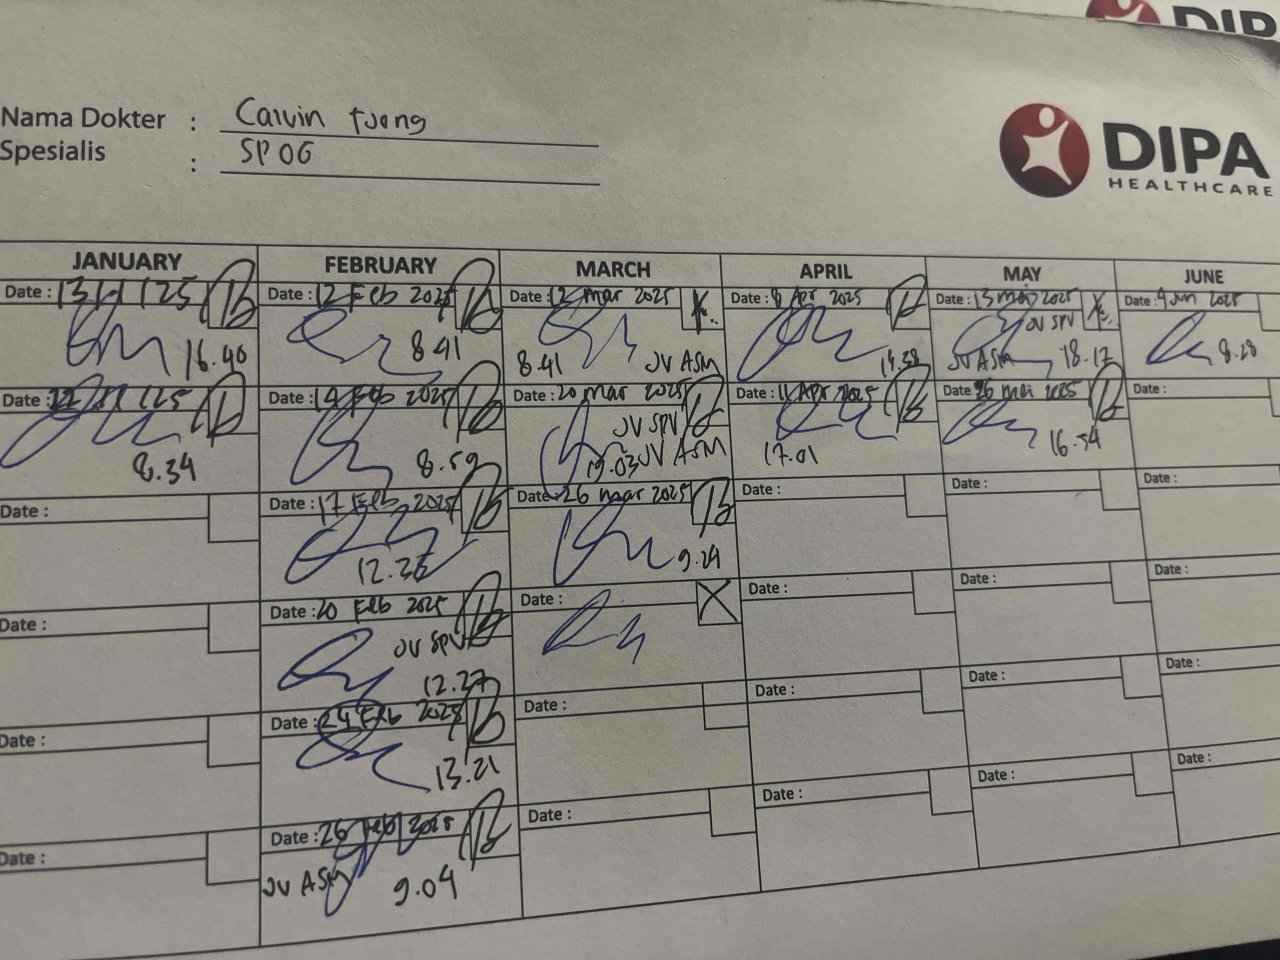 DIP
Nama Dokter : Calvin tjong
Spesialis : SP OG
DIPA
HEALTHCARE
JANUARY FEBRUARY MARCH APRIL MAY JUNE
Date : 13/1/25 Date : 12 Feb 2025 Date : 12 Mar 2025 Date : 8 Apr 2025 Date : 13 mei 2025 Date : 4 Jun 2025
16.40 8.41 8.41 JV ASM 14.38 JV SPV JV ASM 18.17 8.28
Date : /25 Date : 19 Feb 2025 Date : 20 mar 2025 Date : 11 Apr 2025 Date : 26 mei 2025 Date :
8.34 8.59 JV SPV 19.03 JV ASM 17.01 16.54
Date : Date : 17 Feb 2025 Date : 26 mar 2025 Date : Date : Date :
12.36 9.29
Date : Date : 20 Feb 2025 Date : Date : Date : Date :
JV SPV
12.27
Date : Date : 24 Feb 2025 Date : Date : Date : Date :
13.21
Date : Date : 26 Feb 2025 Date : Date : Date : Date :
JV ASM 9.04